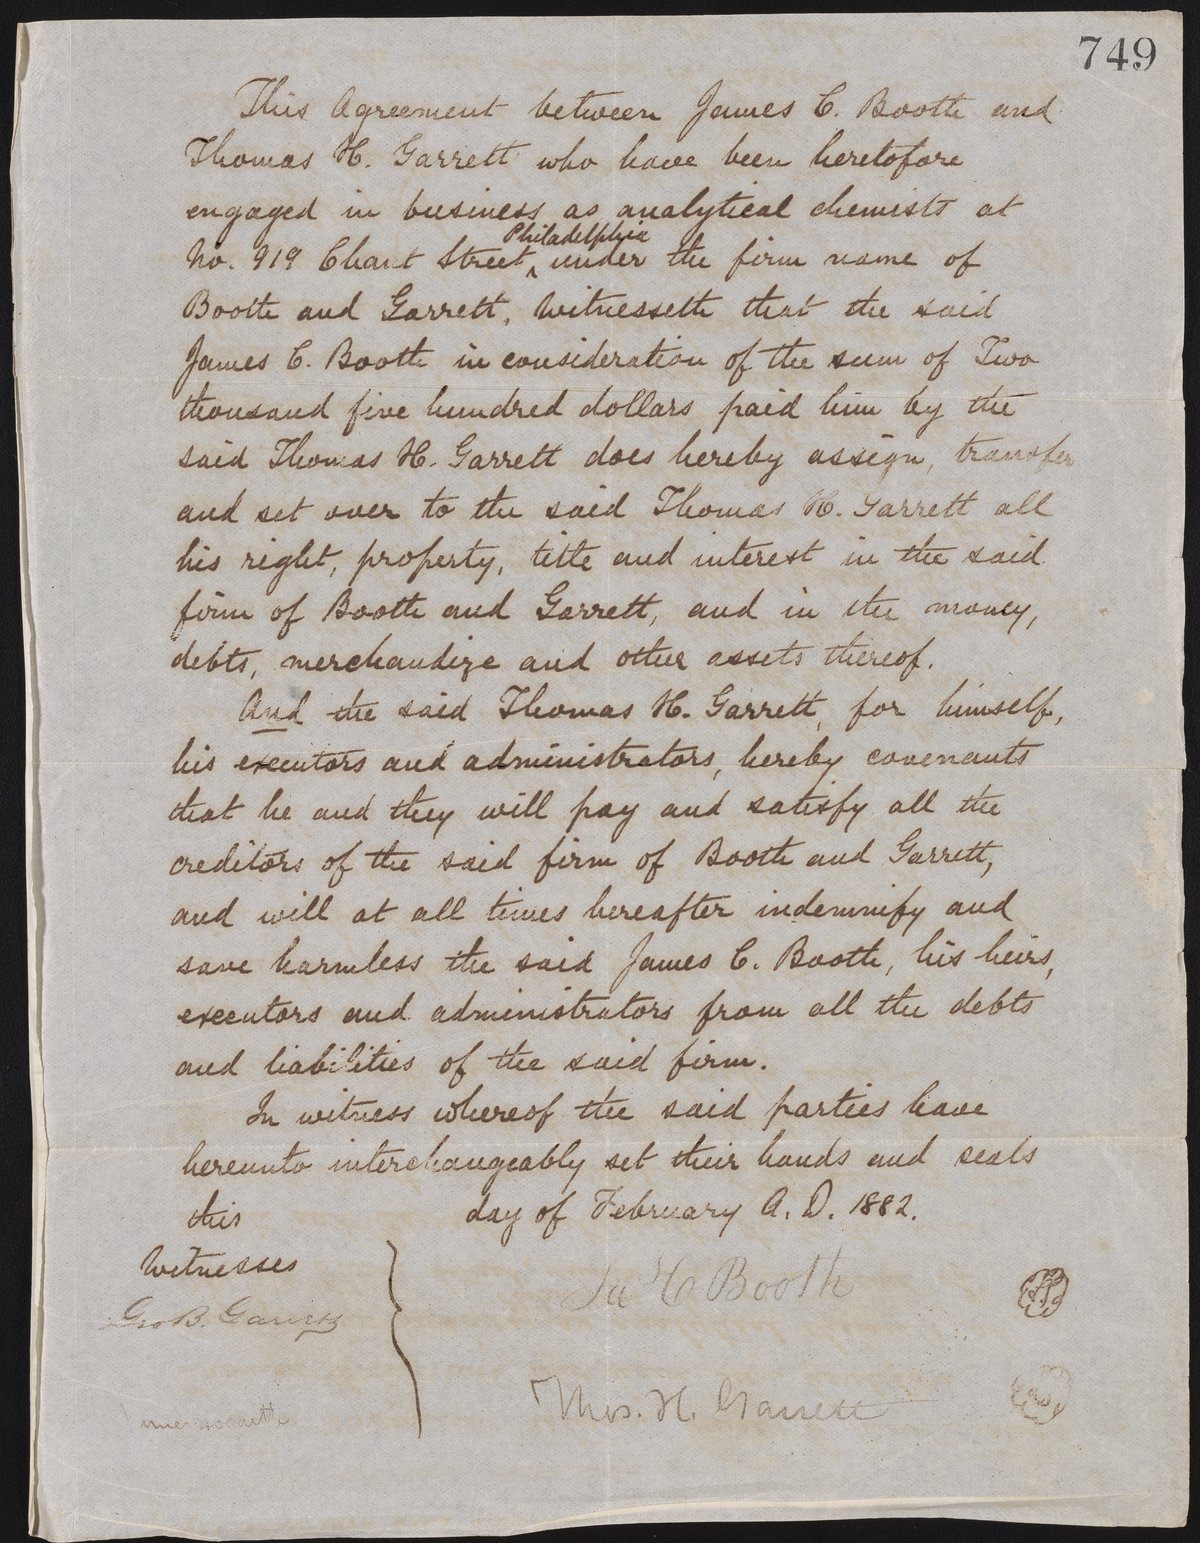 749
This Agreement between James C. Booth and
Thomas H. Garrett who have been heretofore
engaged in business as analytical chemists at
Philadelphia
No. 919 Chant Street, ^ under the firm name of
Booth and Garrett, Witnesseth that the said
James C. Booth in consideration of the sum of Two
thousand five hundred dollars paid him by the
said Thomas H. Garrett does hereby assign, transfer
and set over to the said Thomas H. Garrett all
his right, property, title and interest in the said
firm of Booth and Garrett, and in the money,
debts, merchandize and other assets thereof.
And the said Thomas H. Garrett, for himself,
his executors and administrators, hereby covenants
that he and they will pay and satisfy all the
creditors of the said firm of Booth and Garrett,
and will at all times hereafter indemnify and
save harmless the said James C. Booth, his heirs,
executors and administrators from all the debts
and liabilities of the said firm.
In witness whereof the said parties have
hereunto interchangeably set their hands and seals
this day of February A. D. 1882.
Witnesses
Jas C Booth
Geo B.
Thos. H. Garrett